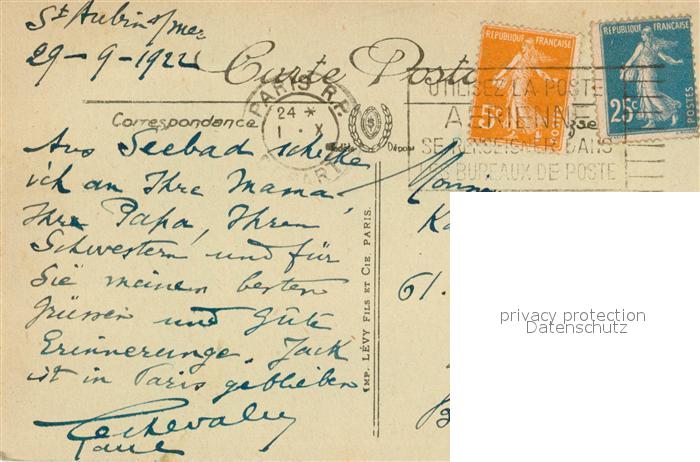 St Aubin s/mer
29-9-1922
Carte Postale
RÉPUBLIQUE FRANÇAISE
5c
POSTES
RÉPUBLIQUE FRANÇAISE
25c
POSTES
PARIS R.P.
24 *
1 · X
DÉPART
UTILISEZ LA POSTE
AERIENNE
SE RENSEIGNER DANS
LES BUREAUX DE POSTE
Correspondance
Modèle Déposé
Aus Seebad schicke
ich an Ihre Mama,
Ihre Papa, Ihren
Schwestern und für
Sie meinen besten
Grüssen und Gute
Erinnerunge. Jack
ist in Paris geblieben
Lechevalier
Paul
IMP. LÉVY FILS ET CIE, PARIS.
61.
privacy protection
Datenschutz